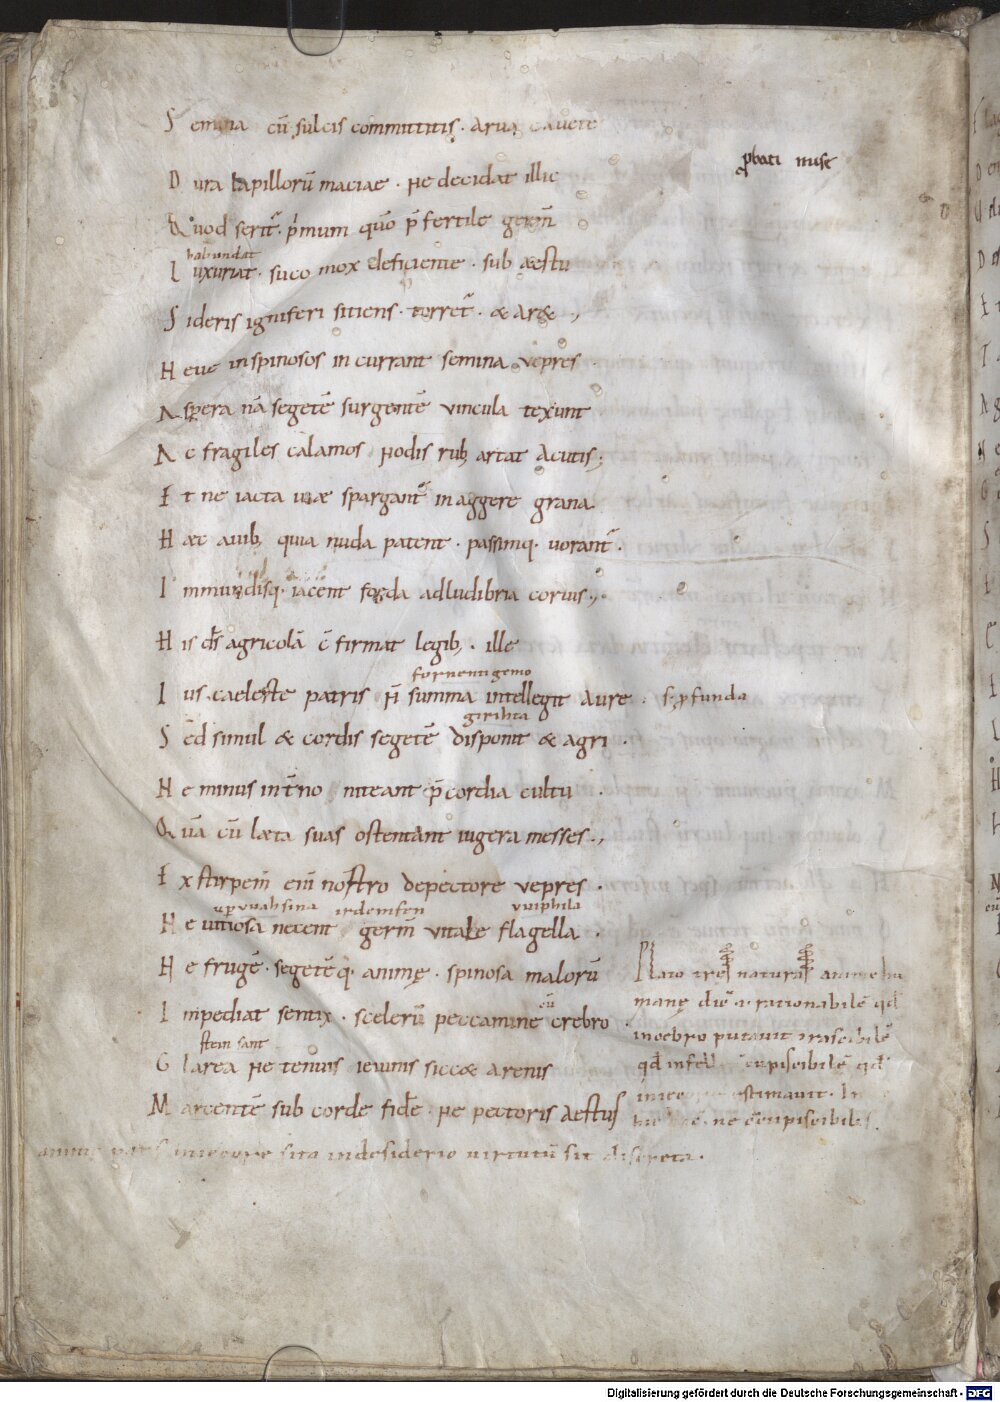 Semina cū sulcis committitis · arua cauete
Dura lapillorū maciae · ne decidat illic
p̄bati nuse
Quod serit̄ · p̄mum quō p̄ fertile germ̄
habundat
Luxuriat · suco mox deficiente · sub aestu
Sideris igniferi sitiens · torret̄ · & aret .,
Neue in spinosos in currant semina vepres ·
Aspera nā segetē surgentē vincula texunt
Ac fragiles calamos nodis rubꝫ artat acutis ;
Et ne iacta uiae spargant̄ in aggere grana
Haec auibꝫ quia nuda patent · passimq · uorant̄ ·
Immundisq · iacent foeda ad ludibria coruis .,
His d̄s agricolā c̄firmat legibꝫ · ille
fornentigemo
Ius caeleste patris n̄ summa intellegit aure · s; p̄funda
girihta
Sed simul & cordis segetē disponit & agri ·
Ne minus int̄no niteant p̄cordia cultu ·
Quā cū laeta suas ostentant iugera messes .,
Exstirpem̄ eni nostro de pectore vepres ·
Ne uitiosa necent germ̄ vitale flagella ·
Ne frugē · segetēq · animę · spinosa malorū
cū
Inpediat sentix · scelerū peccamine crebro
Glarea ne tenuis ieiunis siccae arenis
Marcentē sub corde fidē · ne pectoris aestus
Plato tres naturas anime hu
manę dic̄ · i · rationabilē qd̄
in cebro putauit irascibilē
qd̄ in felle cupiscibilē qd̄
in iecore estimauit ·
in iecore sita in desiderio uirtutū sit discreta ·
Digitalisierung gefördert durch die Deutsche Forschungsgemeinschaft - DFG